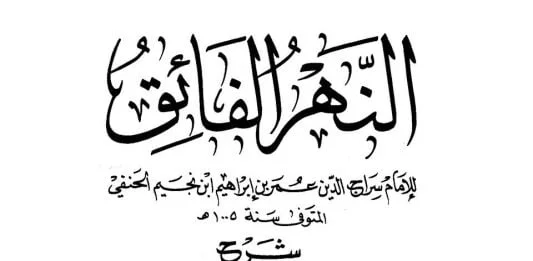 النَّهْرُ الفَائِقُ
للإمَام سِرَاج الدِّين عُمَر بن إبْرَاهِيم ابْن نُجَيم الحَنَفيّ
المتَوفى سَنة ١٠٠٥هـ
شَرْح